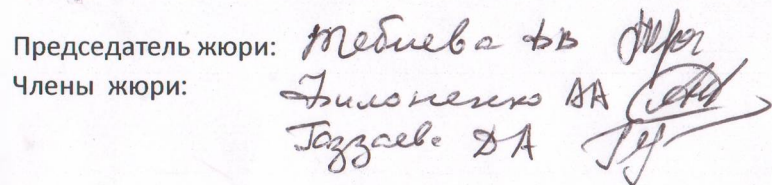 Председатель жюри: Тебиева
Члены жюри: Билоненко АА
Газзаева ДА